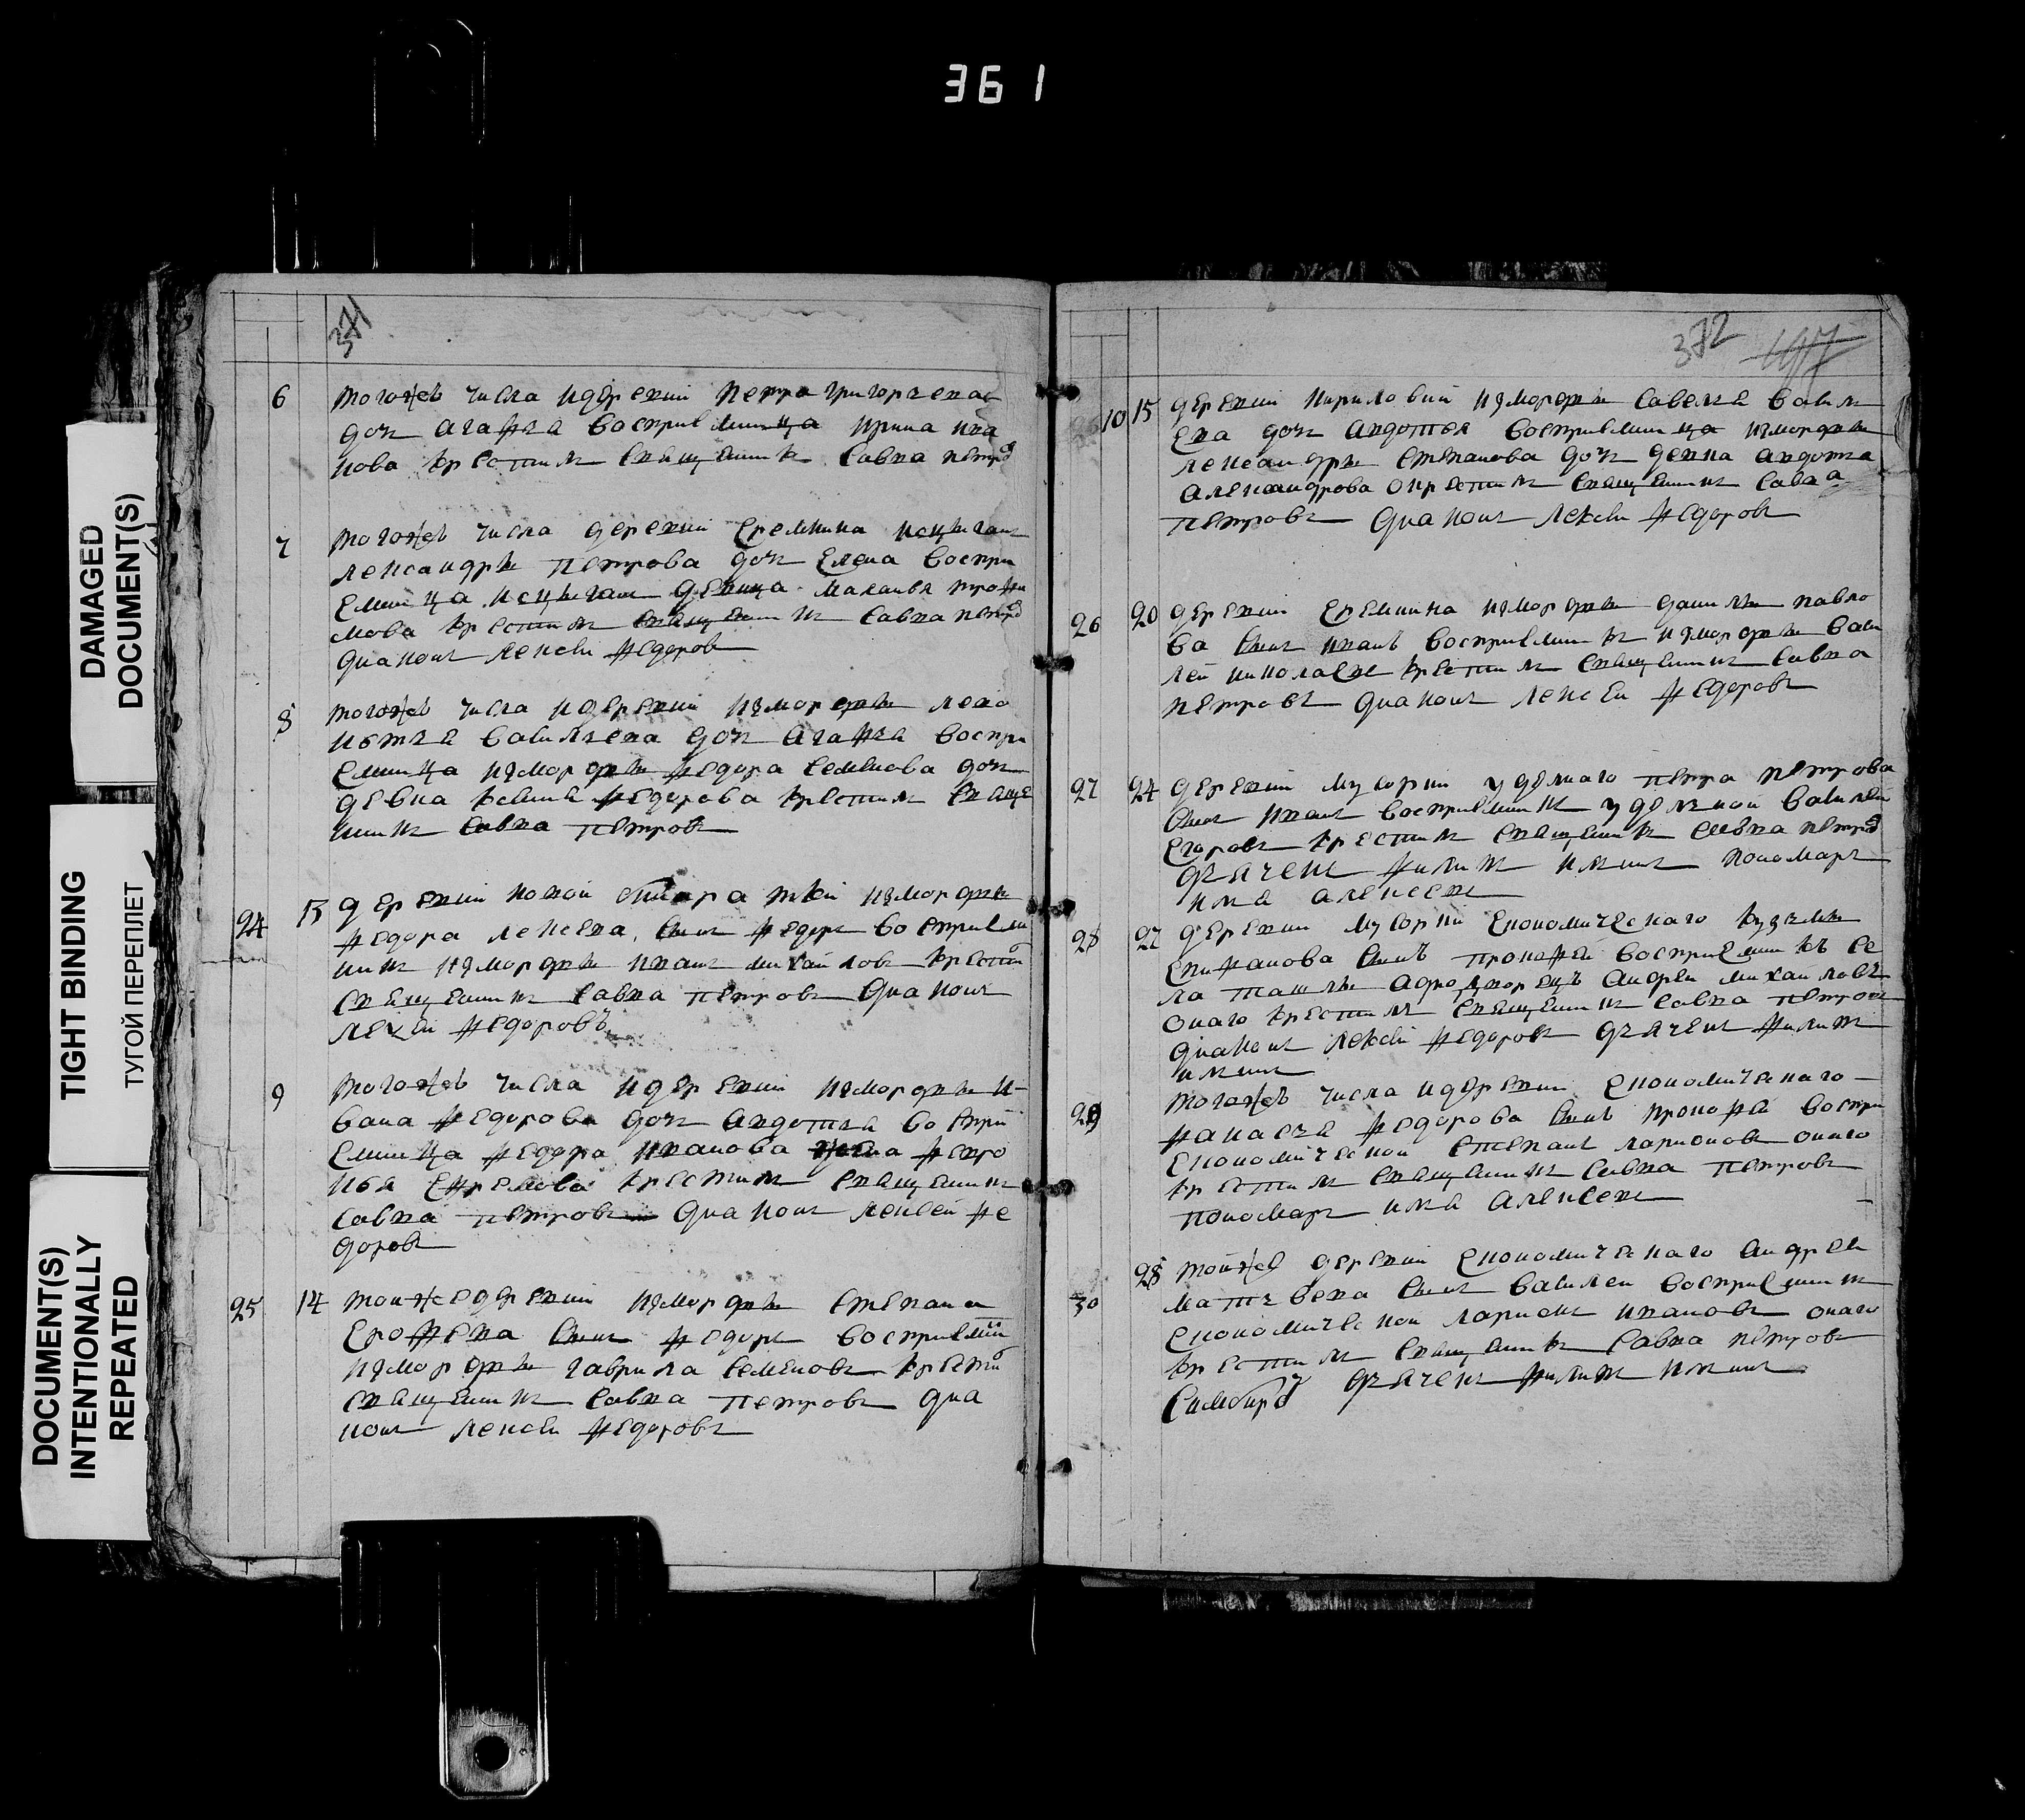 361
DAMAGED
DOCUMENT(S)
TIGHT BINDING
ТУГОЙ ПЕРЕПЛЕТ
DOCUMENT(S)
INTENTIONALLY
REPEATED
371
6 тогожъ числа идеревни петра григорьева
дочь агафья восприемница ирина ива
нова крестилъ священникъ савва петро
7 тогожъ числа деревни еремкина
лександра петрова дочь елена воспри
емница девица маланья трофи
мова крестилъ священникъ савва петро
диаконъ лексеи федоровъ
8 тогожъ числа идеревни измордвы
василяева дочь агафья воспри
емница измордвы федора семенова дочь
девка ксения федорова крестилъ свяще
нникъ савва петровъ
24 13 деревни новой измордвы
федора лексева сынъ федоръ восприем
никъ измордвы иванъ михаиловъ крести
священникъ савва петровъ диаконъ
лексеи федоровъ
9 тогожъ числа идеревни измордвы и
вана федорова дочь авдотья воспри
емница федора иванова жена февро
нья ефремова крестилъ священникъ
савва петровъ диаконъ лексеи фе
доровъ
25 14 тойже деревни измордвы степана
ерофева сынъ федоръ восприемни
измордвы гаврила семеновъ крести
священникъ савва петровъ диа
конъ лексеи федоровъ
372
10 15 деревни кириловки измордвы савелья васил
ева дочь авдотья восприемница измордвы
лександры степанова дочь девка авдотья
александрова окрестилъ священникъ савва
петровъ диаконъ лексеи федоровъ
26 20 деревни еремкина измордвы данилы павло
ва сынъ иванъ восприемникъ измордвы васи
леи николаевъ крестилъ священникъ савва
петровъ диаконъ лексеи федоровъ
27 24 деревни мусорки удѣлнаго петра петрова
сынъ иванъ восприемникъ удѣлнои василеи
егоровъ крестилъ священникъ савва петро
дьячекъ филипъ ильинъ пономарь
илья алексеевъ
28 27 деревни мусорки економическаго кузьмы
епифанова сынъ прокофеи восприемникъ се
ла ташлы однодворецъ андреи михаиловъ
онаго крестилъ священникъ савва петровъ
диаконъ лексеи федоровъ дьячекъ филипъ
ильинъ
29 тогожъ числа идеревни економическаго
фанасья федорова сынъ прокофа воспри
економическои степанъ ларионовъ онаго
крестилъ священникъ савва петровъ
пономарь илья алексеевъ
30 28 тойжъ деревни економическаго андрея
матвеева сынъ василеи восприемникъ
економическои ларионъ ивановъ онаго
крестилъ священникъ савва петровъ
дьячекъ филипъ ильинъ